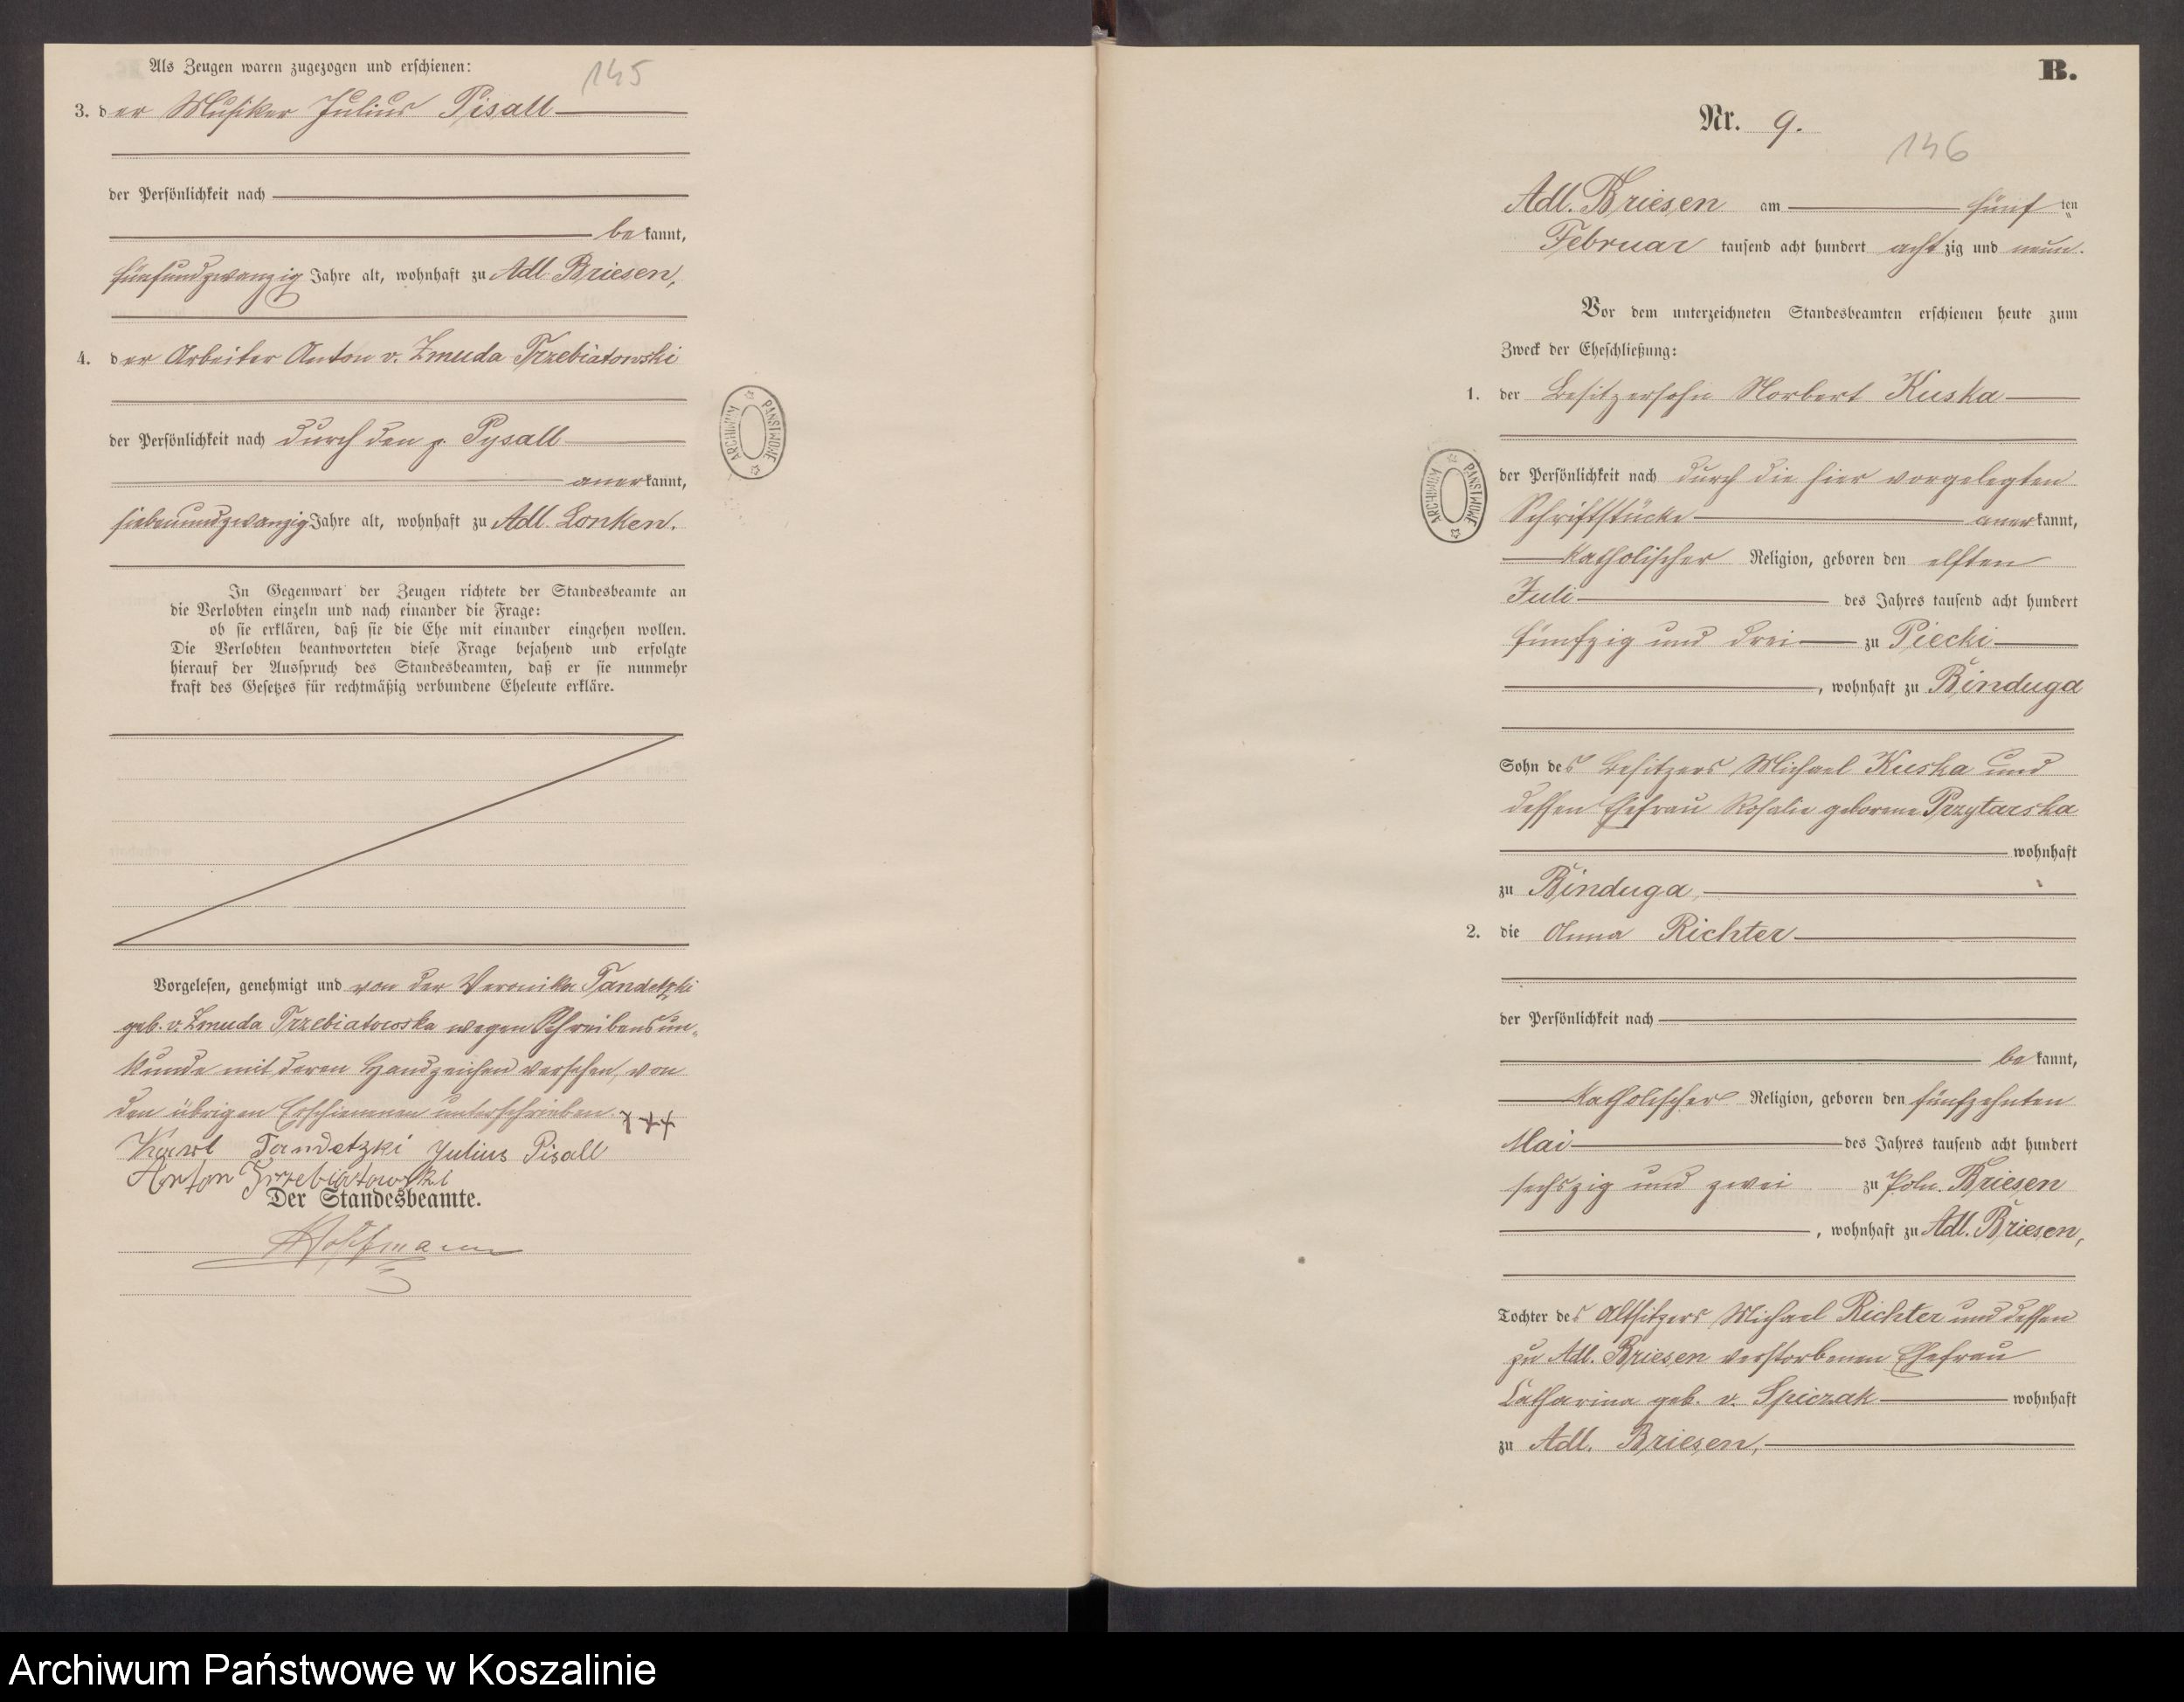 Als Zeugen waren zugezogen und erschienen:
145
3. der Musiker Julius Pisall
der Persönlichkeit nach
bekannt,
fünfundzwanzig Jahre alt, wohnhaft zu Adl. Briesen,
4. der Arbeiter Anton v. Zmuda Trzebiatowski
der Persönlichkeit nach durch den p. Pysall
anerkannt,
siebenundzwanzig Jahre alt, wohnhaft zu Adl. Lonken.
In Gegenwart der Zeugen richtete der Standesbeamte an
die Verlobten einzeln und nach einander die Frage:
ob sie erklären, daß sie die Ehe mit einander eingehen wollen.
Die Verlobten beantworteten diese Frage bejahend und erfolgte
hierauf der Ausspruch des Standesbeamten, daß er sie nunmehr
kraft des Gesetzes für rechtmäßig verbundene Eheleute erkläre.
Vorgelesen, genehmigt und von der Veronika Tandetzki
geb. v. Zmuda Trzebiatowska wegen Schreibensun-
kunde mit deren Handzeichen versehen, von
den übrigen Erschienenen unterschrieben. +++
Karl Tandetzki Julius Pisall
Anton Trzebiatowski
Der Standesbeamte.
Hoffmann
ARCHIWUM PAŃSTWOWE
B.
Nr. 9.
146
Adl. Briesen am fünften
Februar tausend acht hundert achtzig und neun.
Vor dem unterzeichneten Standesbeamten erschienen heute zum
Zweck der Eheschließung:
1. der Besitzersohn Norbert Kuska
der Persönlichkeit nach durch die hier vorgelegten
Schriftstücke anerkannt,
katholischer Religion, geboren den elften
Juli des Jahres tausend acht hundert
fünfzig und drei zu Piecki
, wohnhaft zu Binduga
Sohn des Besitzers Michael Kuska und
dessen Ehefrau Rosalie geborene Przytarska
wohnhaft
zu Binduga,
2. die Anna Richter
der Persönlichkeit nach
bekannt,
katholischer Religion, geboren den fünfzehnten
Mai des Jahres tausend acht hundert
sechszig und zwei zu Poln. Briesen
, wohnhaft zu Adl. Briesen,
Tochter des Altsitzers Michael Richter und dessen
zu Adl. Briesen verstorbenen Ehefrau
Catharina geb. v. Spiczak wohnhaft
zu Adl. Briesen,
ARCHIWUM PAŃSTWOWE
Archiwum Państwowe w Koszalinie